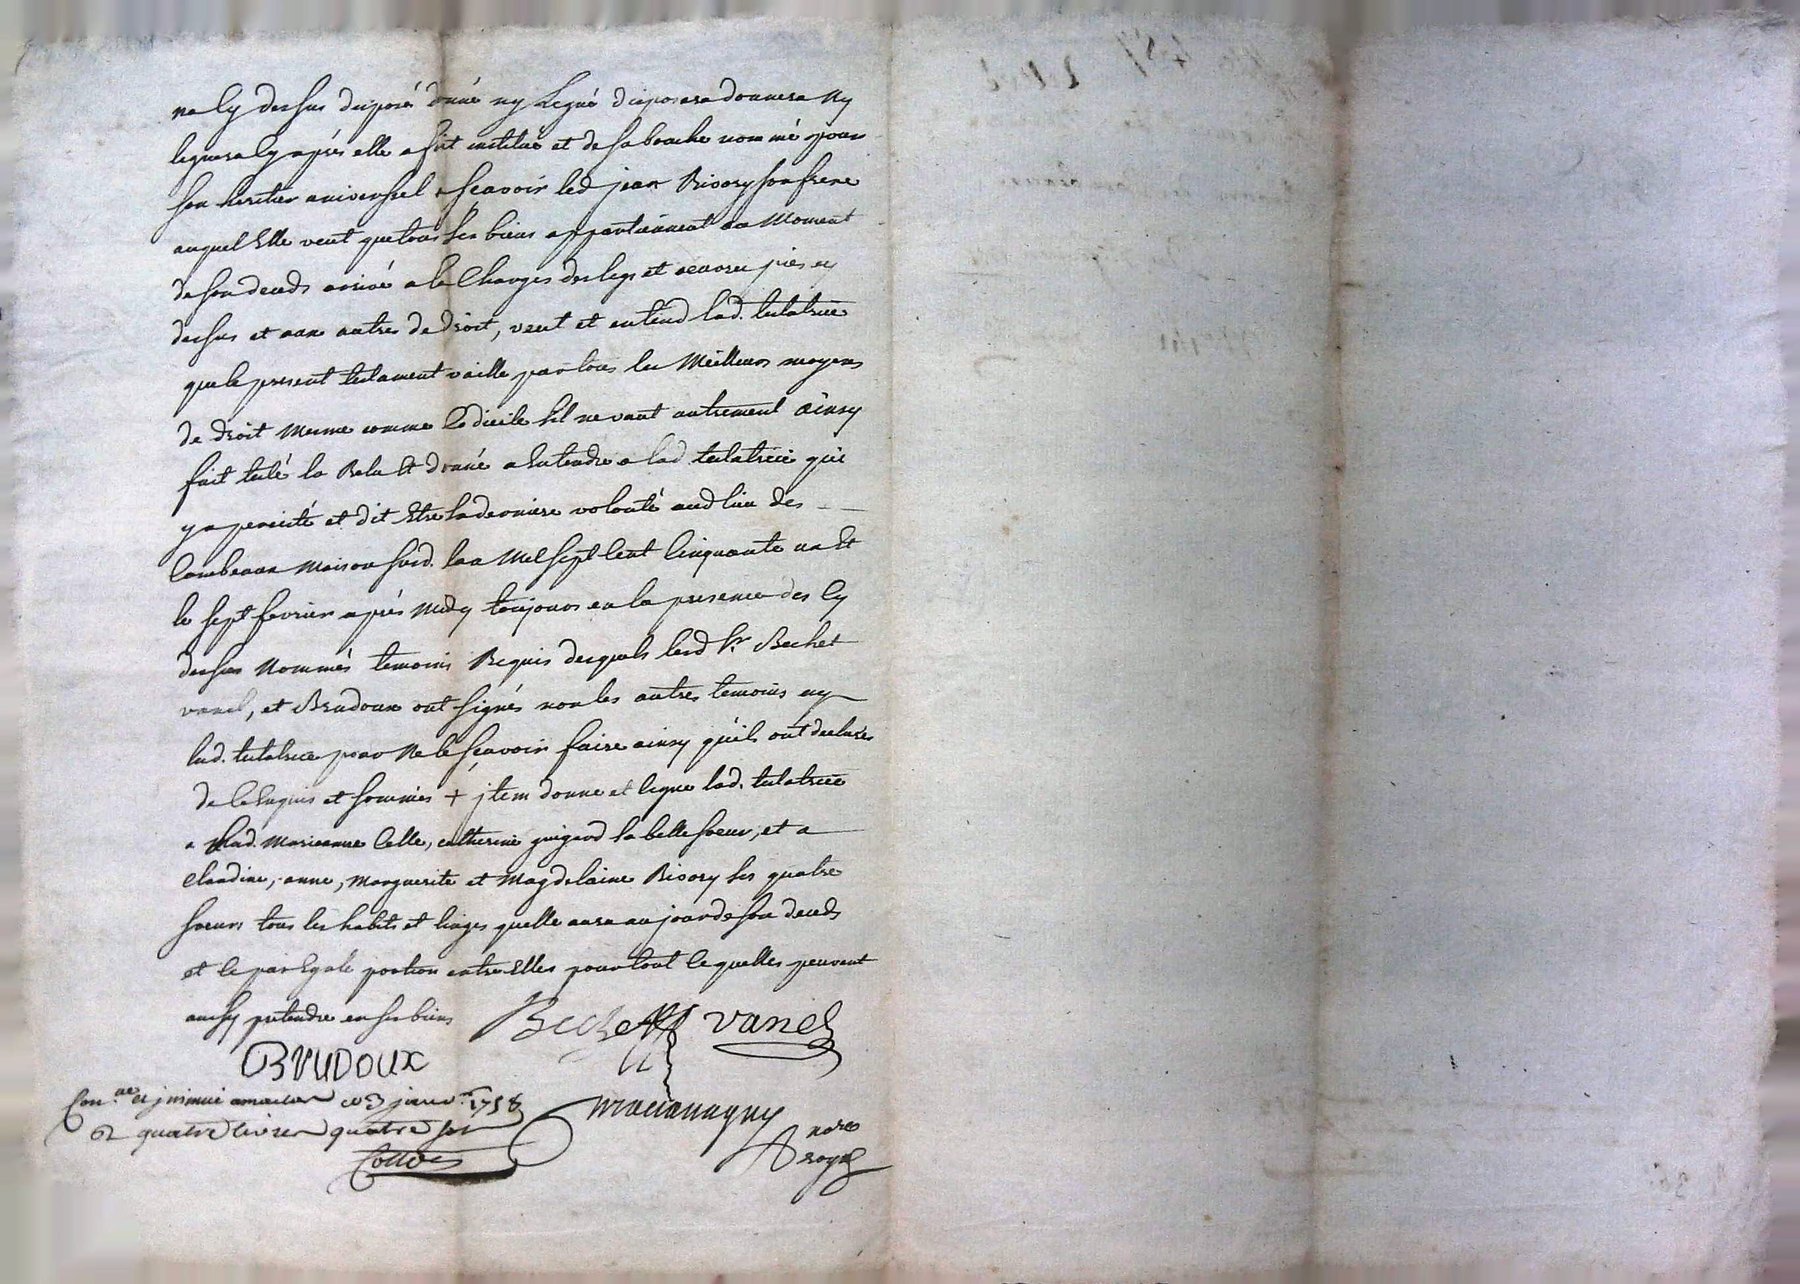 na Cy dessus disposé donné ny Legué disposera donnera Ny
leguera Cy après elle a fait institué et de sa bouche nommé pour
son heritier universsel a Scavoir led jean Rivory son frere
auquel Elle veut que tous ses biens appartiennent au Moment
de son deceds arrivé a la Charges des legs et oeuvres pies cy
dessus et aux autres de droit, veut et entend lad. testatrice
que le present testament vaille par tous les Meilleurs moyens
de droit mesme comme Codicile s'il ne vaut autrement Ainsy
fait testé lû Relu Et donné a Entendre a lad. testatrice qui
y a percisté et dit Etre sa derniere volonté aud lieu des
Combeaux Maison susd. lan Mil Sept Cent Cinquante un Et
le sept fevrier après Midy toujours en la presence des Cy
dessus Nommés temoins Requis desquels lesd Sr. Bechet
vanel, et Brudoux ont signés non les autres temoins ny
lad. testatrice pour Ne le sçavoir faire ainsy quils ont declarés
de ce Enquis et sommés + jtem donne et legue lad. testatrice
a lad. Marieanne Celle, catherine guigard sa belle soeur, et a
Claudine, anne, Marguerite et Magdelaine Rivory ses quatre
soeurs tous les habits et linges quelle aura au jour de son deceds
et ce par Egale portion entre Elles pour tout ce quelles peuvent
aussy pretendre en ses biens Bechet vanel
BRUDOUX
Con.lé et jnsinué a ce 3 janv. 1758
62 quatre livres quatre sols
nore
royal